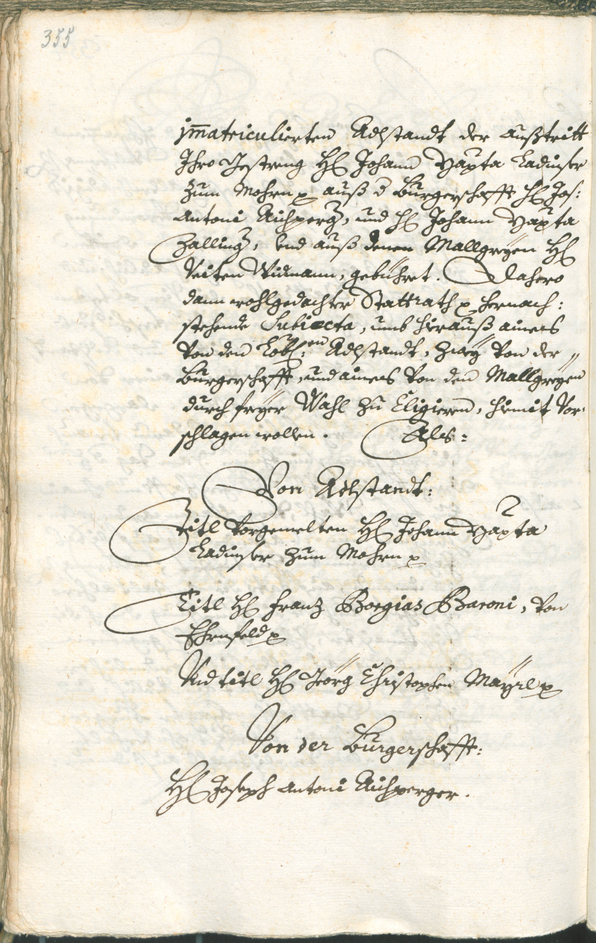 355
jmatriculierten Adlstandt der Außtritt
Ihro Gestreng H: Johann Bapta Ladinser
zum Mohren p auß d Burgerschafft H: Jos:
Antoni Aichperg, und H: Johann Bapta
Zalling, und auß denen Mallgreyen H:
Veiten Widmann, gebühret. Dahero
dann wohlgedachter Stattrath p hernach:
stehende Subiecta, umb hierauß aines
von den Löbl:en Adlstandt, zwey von der
Burgerschafft, und aines von den Mallgreyen
durch freye Wahl zu Eligieren, hiemit vor:
schlagen wollen. Als:
Von Adlstandt:
Titl vorgemelten H: Johann Bapta
Ladinser zum Mohren p
Titl H: Franz Borgias Baroni, von
Ehrnfeld p
Und titl H: Georg Christophen Mayrl p
Von der Burgerschafft:
H: Joseph Antoni Aichperger.